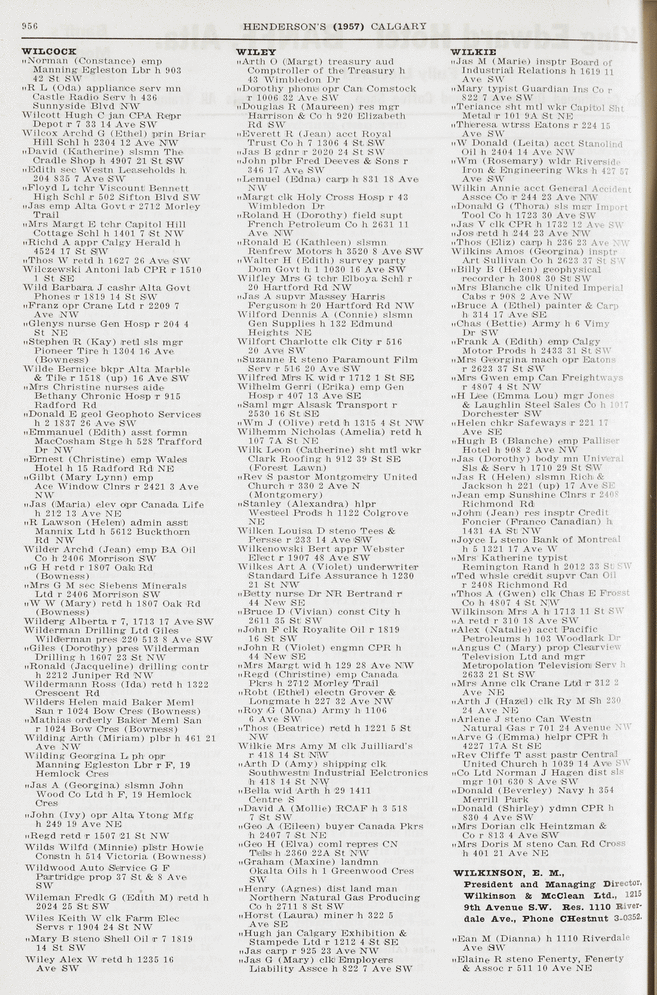 956
HENDERSON'S (1957) CALGARY
WILCOCK
„Norman (Constance) emp
Manning Egleston Lbr h 903
42 St SW
„R L (Oda) appliance serv mn
Castle Radio Serv h 436
Sunnyside Blvd NW
Wilcott Hugh C jan CPA Repr
Depot r 7 33 14 Ave SW
Wilcox Archd G (Ethel) prin Briar
Hill Schl h 2304 12 Ave NW
„David (Katherine) slsmn The
Cradle Shop h 4907 21 St SW
„Edith sec Westn Leaseholds h
204 835 7 Ave SW
„Floyd L tchr Viscount Bennett
High Schl r 502 Sifton Blvd SW
„Jas emp Alta Govt r 2712 Morley
Trail
„Mrs Margt E tchr Capitol Hill
Cottage Schl h 1401 7 St NW
„Richd A appr Calgy Herald h
4524 17 St SW
„Thos W retd h 1627 26 Ave SW
Wilczewski Antoni lab CPR r 1510
1 St SE
Wild Barbara J cashr Alta Govt
Phones r 1819 14 St SW
„Franz opr Crane Ltd r 2209 7
Ave NW
„Glenys nurse Gen Hosp r 204 4
St NE
„Stephen R (Kay) retl sls mgr
Pioneer Tire h 1304 16 Ave
(Bowness)
Wilde Bernice bkpr Alta Marble
& Tile r 1518 (up) 16 Ave SW
„Mrs Christine nurses aide
Bethany Chronic Hosp r 915
Radford Rd
„Donald E geol Geophoto Services
h 2 1837 26 Ave SW
„Emmanuel (Edith) asst formn
MacCosham Stge h 528 Trafford
Dr NW
„Ernest (Christine) emp Wales
Hotel h 15 Radford Rd NE
„Gilbt (Mary Lynn) emp
Ace Window Clnrs r 2421 3 Ave
NW
„Jas (Maria) elev opr Canada Life
h 212 13 Ave NE
„R Lawson (Helen) admin asst
Mannix Ltd h 5612 Buckthorn
Rd NW
Wilder Archd (Jean) emp BA Oil
Co h 2406 Morrison SW
„G H retd r 1807 Oak Rd
(Bowness)
„Mrs G M sec Siebens Minerals
Ltd r 2406 Morrison SW
„W W (Mary) retd h 1807 Oak Rd
(Bowness)
Wilderg Alberta r 7, 1713 17 Ave SW
Wilderman Drilling Ltd Giles
Wilderman pres 220 513 8 Ave SW
„Giles (Dorothy) pres Wilderman
Drilling h 1607 23 St NW
„Ronald (Jacqueline) drilling contr
h 2212 Juniper Rd NW
Wildermann Ross (Ida) retd h 1322
Crescent Rd
Wilders Helen maid Baker Meml
San r 1024 Bow Cres (Bowness)
„Mathias orderly Baker Meml San
r 1024 Bow Cres (Bowness)
Wilding Arth (Miriam) plbr h 461 21
Ave NW
Wilding Georgina L ph opr
Manning Egleston Lbr r F, 19
Hemlock Cres
„Jas A (Georgina) slsmn John
Wood Co Ltd h F, 19 Hemlock
Cres
„John (Ivy) opr Alta Ytong Mfg
h 249 19 Ave NE
„Regd retd r 1507 21 St NW
Wilds Wilfd (Minnie) plstr Howie
Constn h 514 Victoria (Bowness)
Wildwood Auto Service G F
Partridge prop 37 St & 8 Ave
SW
Wileman Fredk G (Edith M) retd h
2024 25 St SW
Wiles Keith W clk Farm Elec
Servs r 1904 24 St NW
„Mary B steno Shell Oil r 7 1819
14 St SW
Wiley Alex W retd h 1235 16
Ave SW
WILEY
„Arth O (Margt) treasury aud
Comptroller of the Treasury h
43 Wimbledon Dr
„Dorothy phone opr Can Comstock
r 1006 32 Ave SW
„Douglas R (Maureen) res mgr
Harrison & Co h 920 Elizabeth
Rd SW
„Everett R (Jean) acct Royal
Trust Co h 7 1306 4 St SW
„Jas B gdnr r 2020 24 St SW
„John plbr Fred Deeves & Sons r
346 17 Ave SW
„Lemuel (Edna) carp h 831 18 Ave
NW
„Margt clk Holy Cross Hosp r 43
Wimbledon Dr
„Roland H (Dorothy) field supt
French Petroleum Co h 2631 11
Ave NW
„Ronald E (Kathleen) slsmn
Renfrew Motors h 3520 8 Ave SW
„Walter H (Edith) survey party
Dom Govt h 1 1030 16 Ave SW
Wilfley Mrs G tchr Elboya Schl r
20 Hartford Rd NW
„Jas A supvr Massey Harris
Ferguson h 20 Hartford Rd NW
Wilford Dennis A (Connie) slsmn
Gen Supplies h 132 Edmund
Heights NE
Wilfort Charlotte clk City r 516
20 Ave SW
„Suzanne R steno Paramount Film
Serv r 516 20 Ave SW
Wilfred Mrs K wid r 1712 1 St SE
Wilhelm Gerri (Erika) emp Gen
Hosp r 407 13 Ave SE
„Saml mgr Alsask Transport r
2530 16 St SE
„Wm J (Olive) retd h 1315 4 St NW
Wilhemm Nicholas (Amelia) retd h
107 7A St NE
Wilk Leon (Catherine) sht mtl wkr
Clark Roofing h 912 39 St SE
(Forest Lawn)
„Rev S pastor Montgomery United
Church r 330 2 Ave N
(Montgomery)
„Stanley (Alexandra) hlpr
Westeel Prods h 1122 Colgrove
NE
Wilken Louisa D steno Tees &
Persse r 233 14 Ave SW
Wilkenowski Bert appr Webster
Elect r 1907 48 Ave SW
Wilkes Art A (Violet) underwriter
Standard Life Assurance h 1230
21 St NW
„Betty nurse Dr NR Bertrand r
44 New SE
„Bruce D (Vivian) const City h
2611 35 St SW
„John F clk Royalite Oil r 1819
16 St SW
„John R (Violet) engmn CPR h
44 New SE
„Mrs Margt wid h 129 28 Ave NW
„Regd (Christine) emp Canada
Pkrs h 2712 Morley Trail
„Robt (Ethel) electn Grover &
Longmate h 227 32 Ave NW
„Roy G (Mona) Army h 1106
6 Ave SW
„Thos (Beatrice) retd h 1221 5 St
NW
Wilkie Mrs Amy M clk Juilliard's
r 418 14 St NW
„Arth D (Amy) shipping clk
Southwestn Industrial Eelctronics
h 418 14 St NW
„Bella wid Arth h 29 1411
Centre S
„David A (Mollie) RCAF h 3 518
7 St SW
„Geo A (Eileen) buyer Canada Pkrs
h 2407 7 St NE
„Geo H (Elva) coml repres CN
Tels h 2360 22A St NW
„Graham (Maxine) landmn
Okalta Oils h 1 Greenwood Cres
SW
„Henry (Agnes) dist land man
Northern Natural Gas Producing
Co h 2711 8 St SW
„Horst (Laura) miner h 322 5
Ave SE
„Hugh jan Calgary Exhibition &
Stampede Ltd r 1212 4 St SE
„Jas carp r 925 23 Ave NW
„Jas G (Mary) clk Employers
Liability Assce h 822 7 Ave SW
WILKIE
„Jas M (Marie) insptr Board of
Industrial Relations h 1619 11
Ave SW
„Mary typist Guardian Ins Co r
822 7 Ave SW
„Teriance sht mtl wkr Capitol Sht
Metal r 101 9A St NE
„Theresa wtrss Eatons r 224 15
Ave SW
„W Donald (Leita) acct Stanolind
Oil h 2404 14 Ave NW
„Wm (Rosemary) wldr Riverside
Iron & Engineering Wks h 427 57
Ave SW
Wilkin Annie acct General Accident
Assce Co r 244 23 Ave NW
„Donald G (Thora) sls mgr Import
Tool Co h 1723 30 Ave SW
„Jas V clk CPR h 1732 12 Ave SW
„Jos retd h 244 23 Ave NW
„Thos (Eliz) carp h 236 23 Ave NW
Wilkins Amos (Georgina) insptr
Art Sullivan Co h 2623 37 St SW
„Billy B (Helen) geophysical
recorder h 3008 30 St SW
„Mrs Blanche clk United Imperial
Cabs r 908 2 Ave NW
„Bruce A (Ethel) painter & Carp
h 314 17 Ave SE
„Chas (Bettie) Army h 6 Vimy
Dr SW
„Frank A (Edith) emp Calgy
Motor Prods h 2433 31 St SW
„Mrs Georgina mach opr Eatons
r 2623 37 St SW
„Mrs Gwen emp Can Freightways
r 4807 4 St NW
„H Lee (Emma Lou) mgr Jones
& Laughlin Steel Sales Co h 1017
Dorchester SW
„Helen chkr Safeways r 221 17
Ave SE
„Hugh B (Blanche) emp Palliser
Hotel h 908 2 Ave NW
„Jas (Dorothy) body mn Universal
Sls & Serv h 1710 29 St SW
„Jas R (Helen) slsmn Rich &
Jackson h 221 (up) 17 Ave SE
„Jean emp Sunshine Clnrs r 2408
Richmond Rd
„John (Jean) res insptr Credit
Foncier (Franco Canadian) h
1431 4A St NW
„Joyce L steno Bank of Montreal
h 5 1321 17 Ave W
„Mrs Katherine typist
Remington Rand h 2012 33 St SW
„Ted whsle credit supvr Can Oil
r 2408 Richmond Rd
„Thos A (Gwen) clk Chas E Frosst
Co h 4807 4 St NW
Wilkinson Mrs A h 1713 11 St SW
„A retd r 310 18 Ave SW
„Alex (Natalie) acct Pacific
Petroleums h 103 Woodlark Dr
„Angus C (Mary) prop Clearview
Television Ltd and mgr
Metropolation Television Serv h
2633 21 St SW
„Mrs Anne clk Crane Ltd r 312 2
Ave NE
„Arth J (Hazel) clk Ry M Sh 230
24 Ave NE
„Arlene J steno Can Westn
Natural Gas r 701 24 Avenue NW
„Arve G (Emma) helpr CPR h
4227 17A St SE
„Rev Cliffe T asst pastr Central
United Church h 1039 14 Ave SW
„Co Ltd Norman J Hagen dist sls
mgr 101 630 8 Ave SW
„Donald (Beverley) Navy h 354
Merrill Park
„Donald (Shirley) ydmn CPR h
830 4 Ave SW
„Mrs Dorian clk Heintzman &
Co r 813 4 Ave SW
„Mrs Doris M steno Can Rd Cross
h 401 21 Ave NE
WILKINSON, E. M.,
President and Managing Director,
Wilkinson & McClean Ltd., 1215
9th Avenue S.W. Res. 1110 River-
dale Ave., Phone CHestnut 3-0352.
„Ean M (Dianna) h 1110 Riverdale
Ave SW
„Elaine R steno Fenerty, Fenerty
& Assoc r 511 10 Ave NE